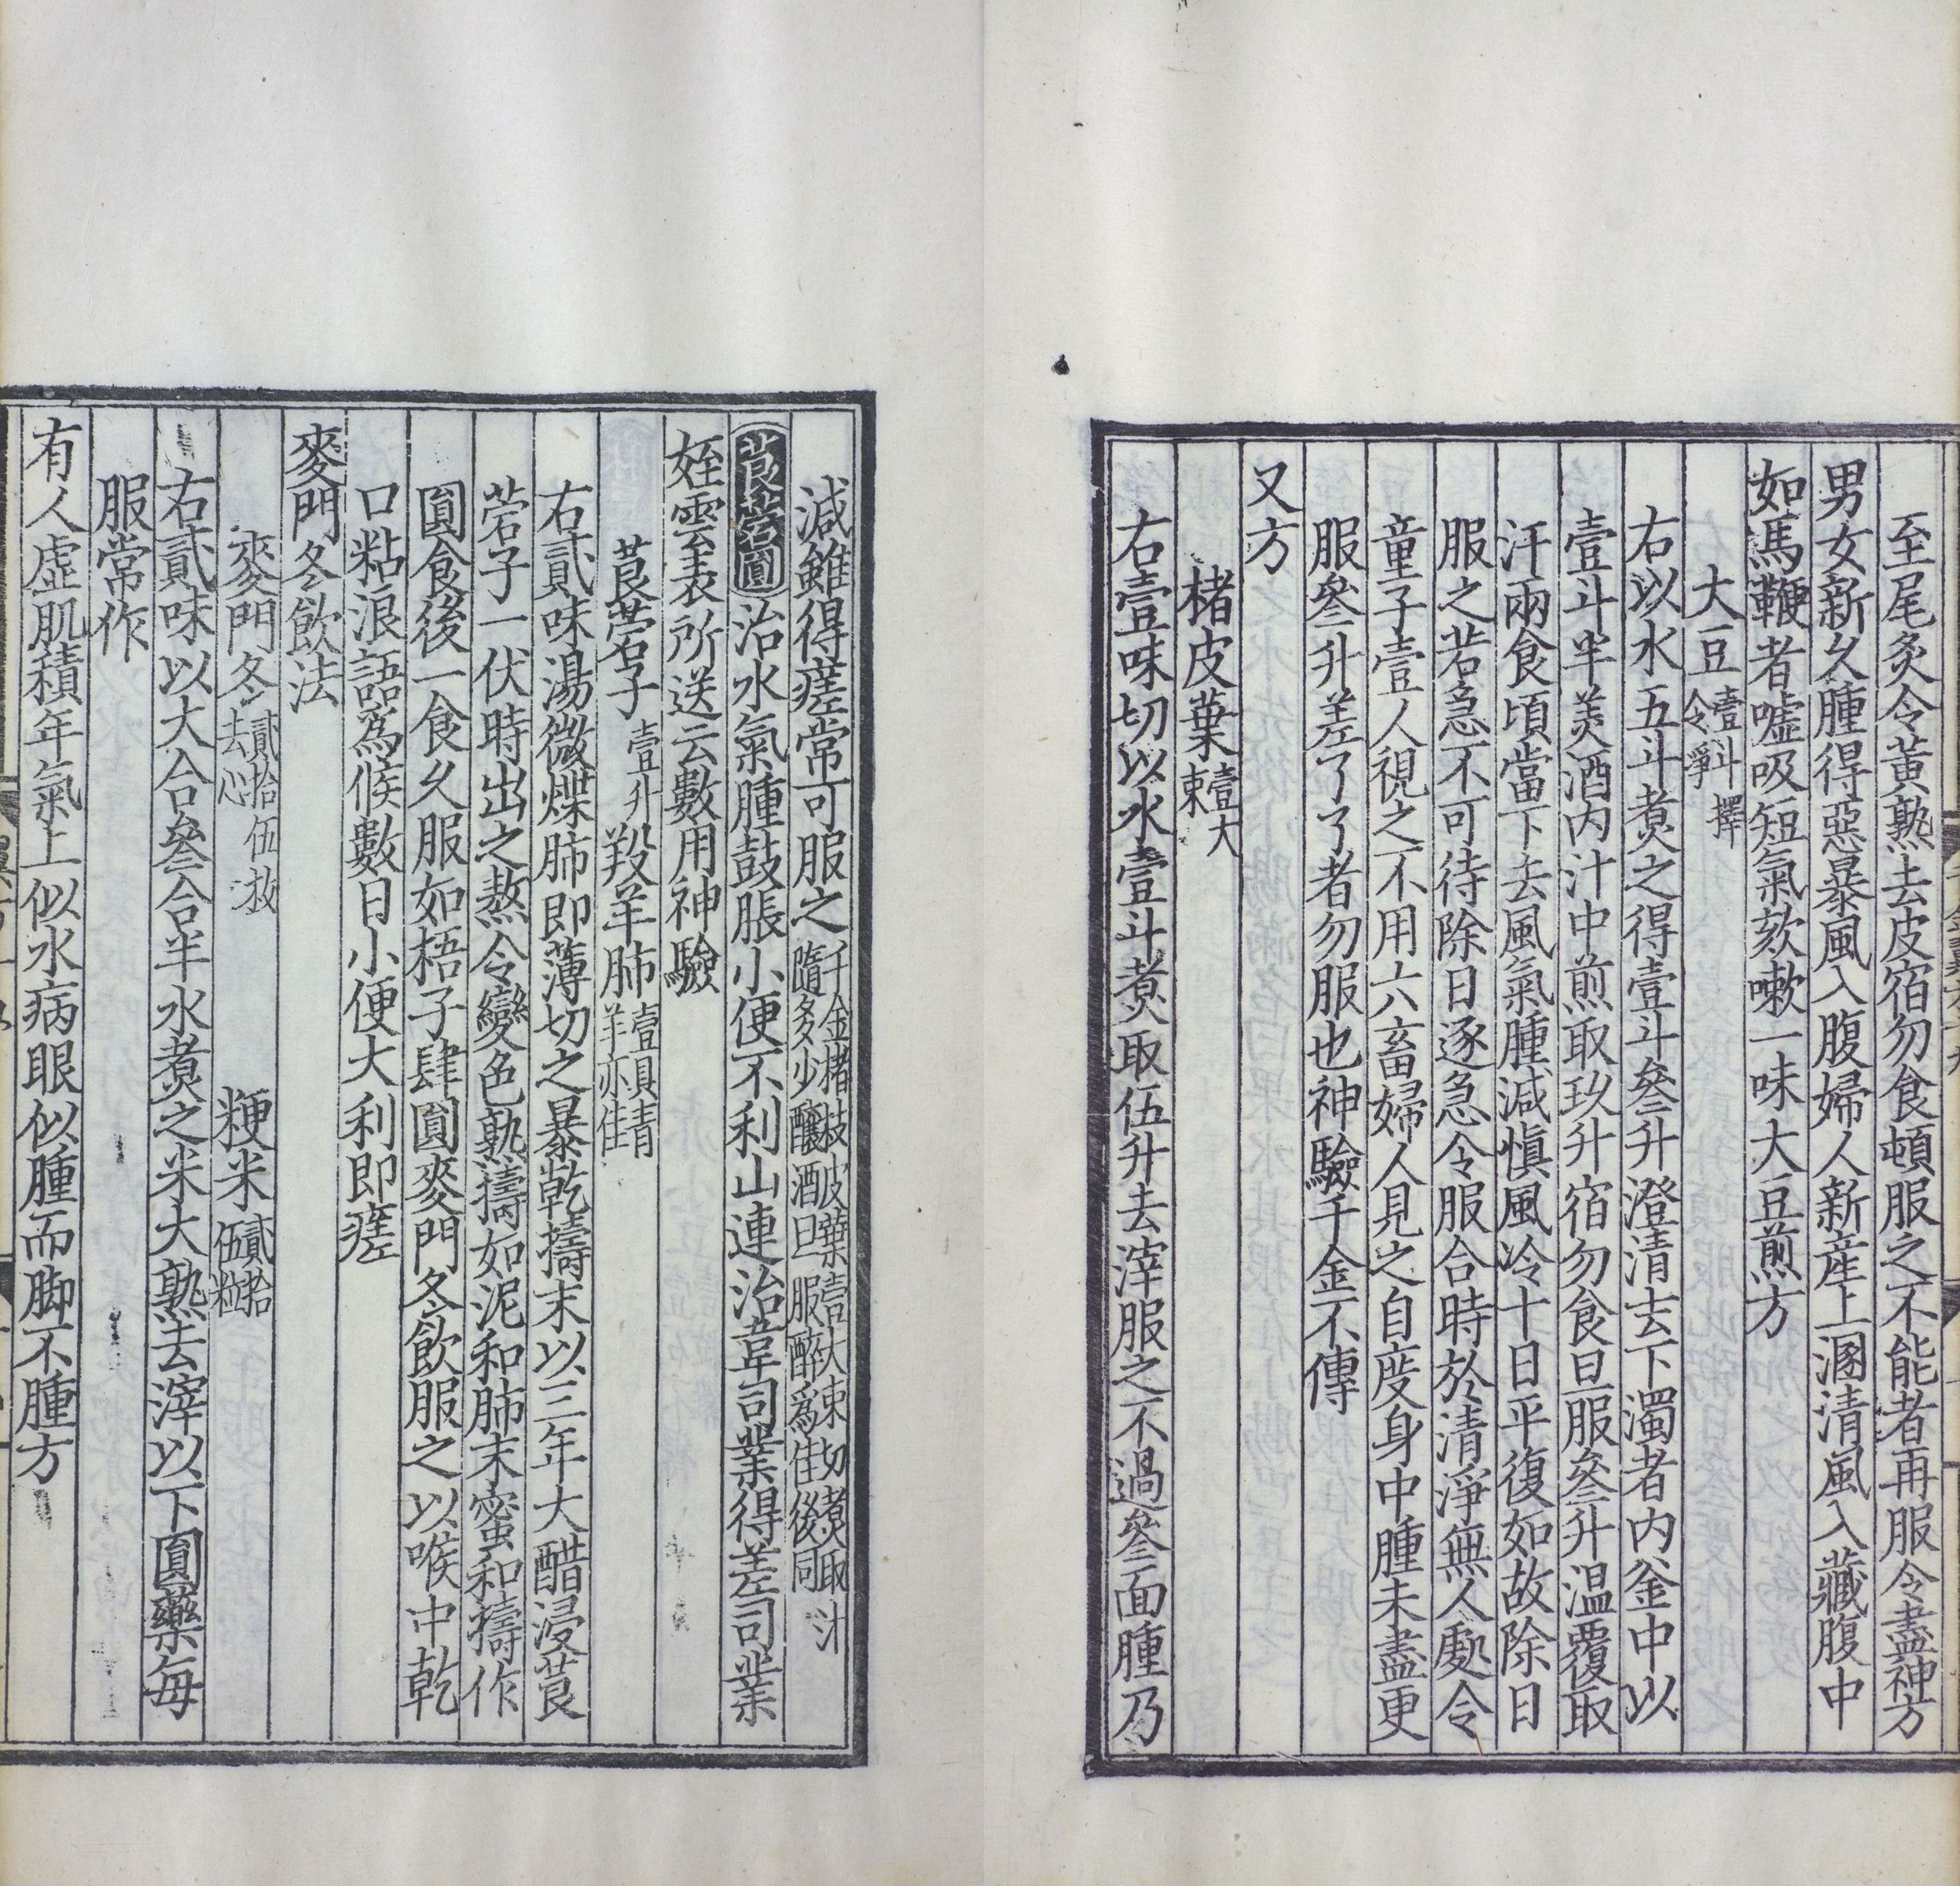 至尾炙令黄熟去皮宿勿食頓服之不能者再服令盡神方
男女新久腫得惡暴風入腹婦人新産上溷清風入藏腹中
如馬鞭者噓吸短氣欬嗽一味大豆煎方
大豆壹斗擇令淨
右以水五斗煮之得壹斗叁升澄清去下濁者内釜中以
壹斗半美酒内汁中煎取玖升宿勿食旦服叁升温覆取
汗兩食頃當下去風氣腫減慎風冷十日平復如故除日
服之若急不可待除日逐急令服合時於清淨無人處令
童子壹人視之不用六畜婦人見之自度身中腫未盡更
服叁升差了了者勿服也神驗千金不傳
又方
楮皮葉壹大束
右壹味切以水壹斗煮取伍升去滓服之不過叁面腫乃
減雖得瘥常可服之千金楮枝皮葉壹大束切煮取汁隨多少釀酒旦服醉爲佳後同
莨菪圓治水氣腫鼓脹小便不利山連治韋司業得差司業
姪雲表所送云數用神驗
莨菪子壹升 羖羊肺壹具青羊亦佳
右貳味湯微煠肺即薄切之暴乾擣末以三年大醋浸莨
菪子一伏時出之熬令變色熟擣如泥和肺末蜜和擣作
圓食後一食久服如梧子肆圓麥門冬飲服之以喉中乾
口粘浪語爲候數日小便大利即瘥
麥門冬飲法
麥門冬貳拾伍枚去心 粳米貳拾伍粒
右貳味以大合叁合半水煮之米大熟去滓以下圓藥每
服常作
有人虚肌積年氣上似水病眼似腫而脚不腫方